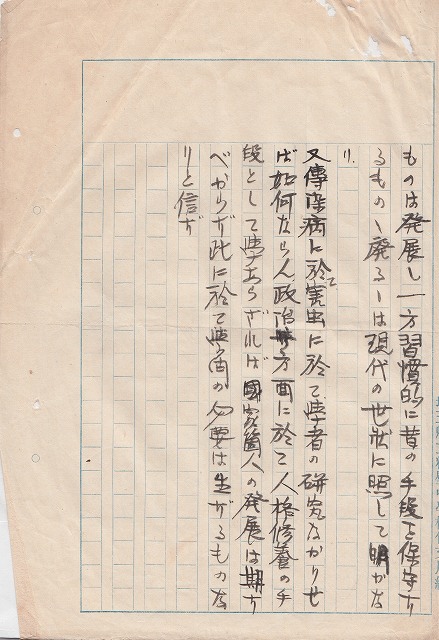 ものは発展し一方習慣的に昔の手段を保守す
るものゝ廃るゝは現代の世状に照して明かな
り、
又傳染病に於て害虫に於て学者の研究なかりせ
ば如何ならん政治方面に於て人格修養の手
段として学あらざれば國家箇人の発展は期す
べからず此に於て学問の必要は生ずるものな
りと信ず